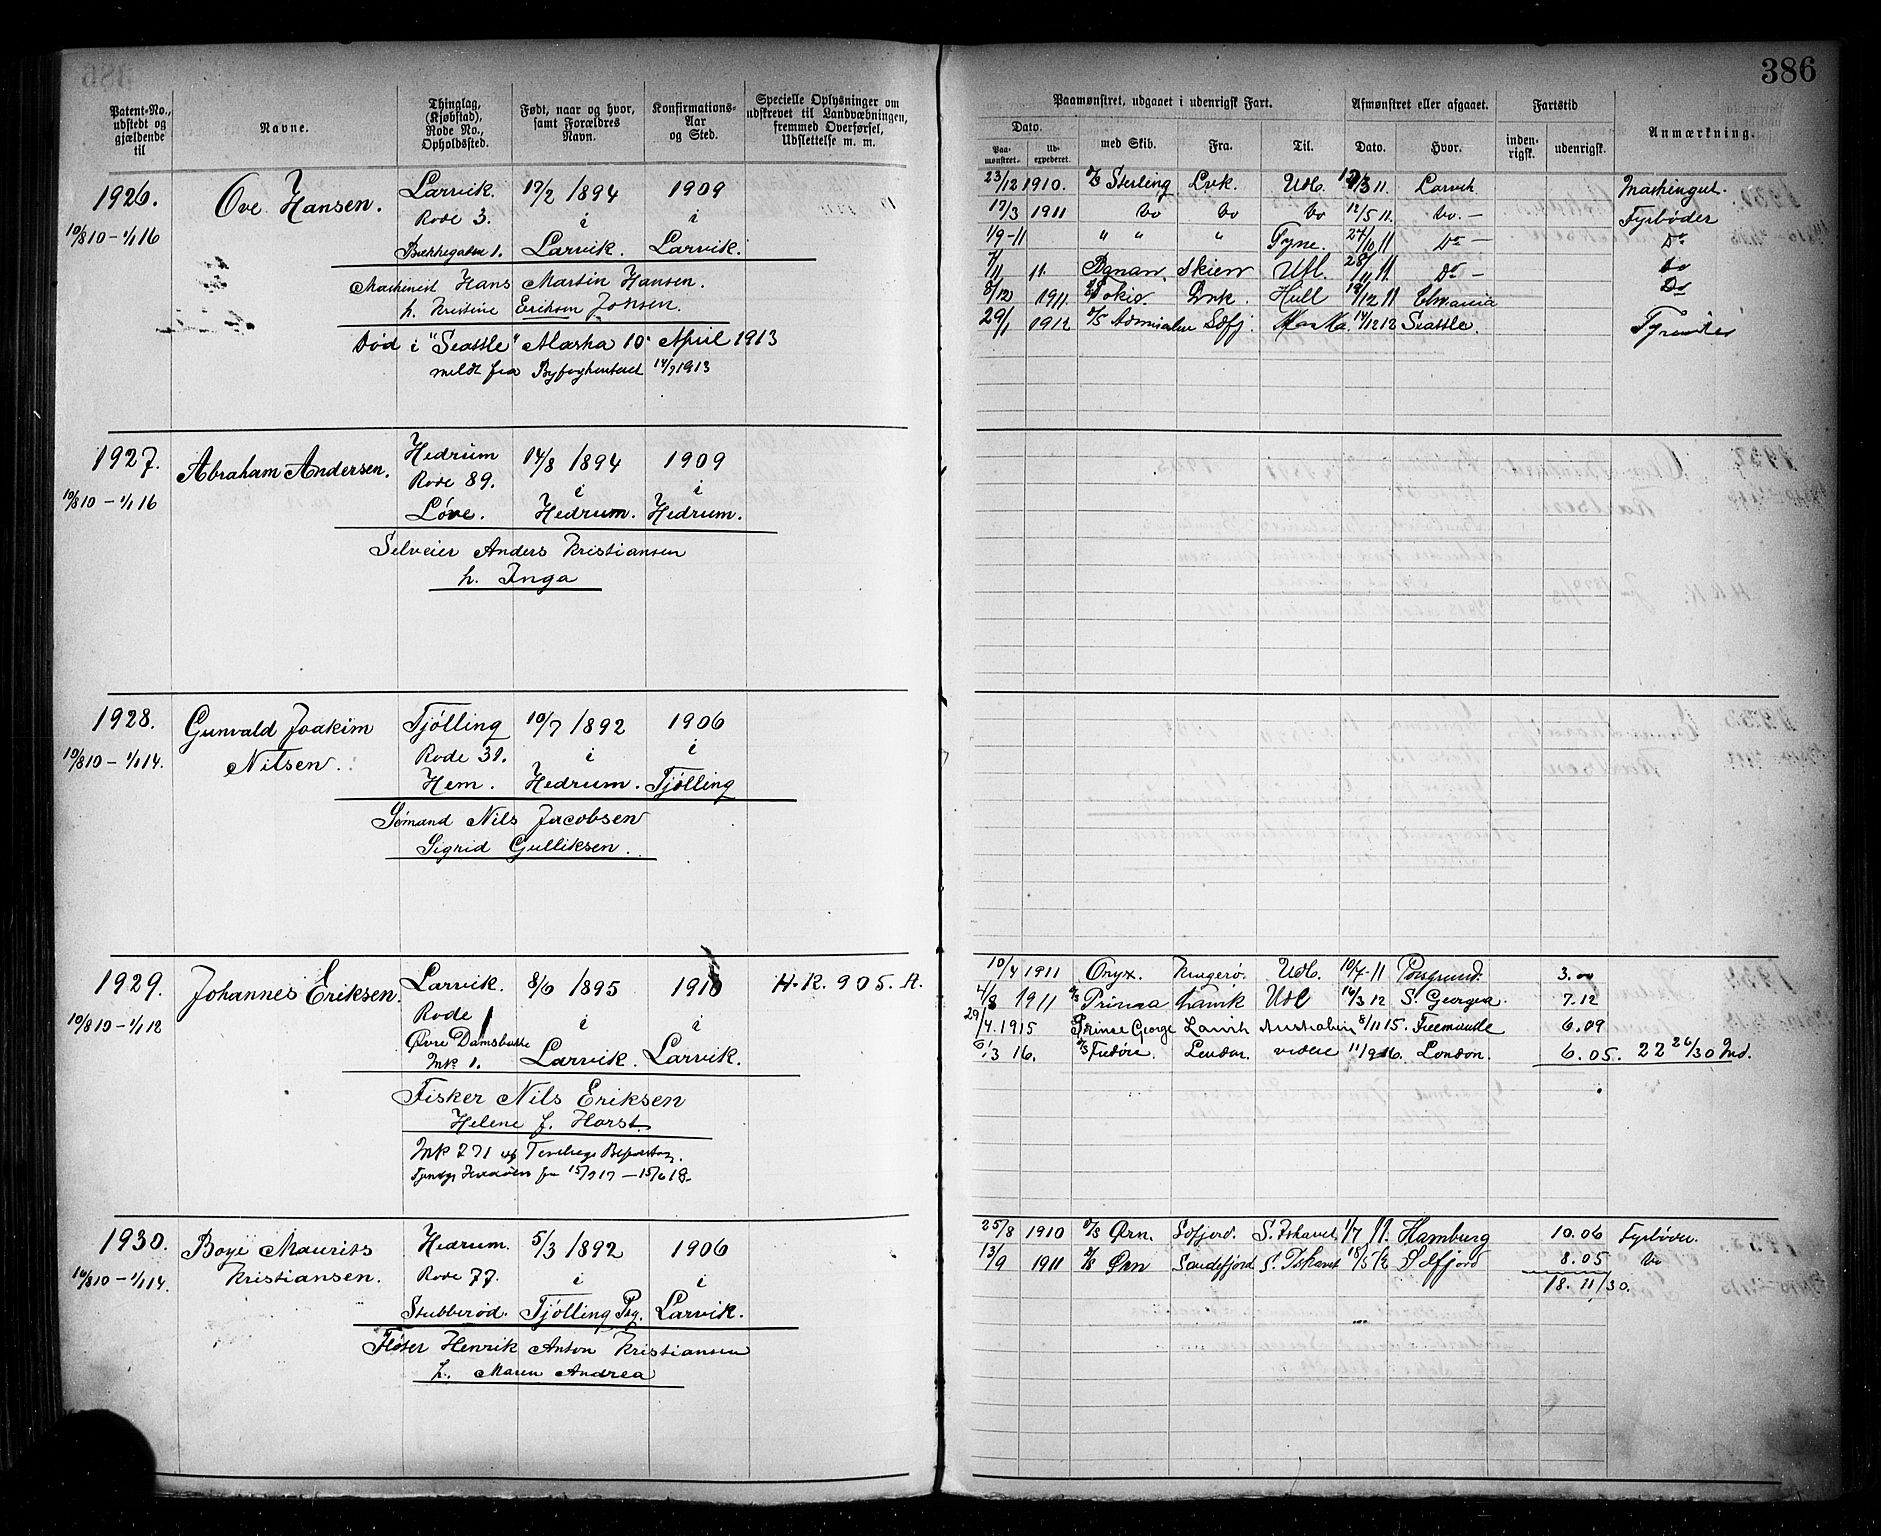 386
Patent-No., udstedt og gjældende til
Navne.
Thinglag, (Kjøbstad), Rode No., Opholdssted.
Født, naar og hvor, samt Forældres Navn.
Konfirmations-Aar og Sted.
Specielle Oplysninger om udskrevet til Landvæbningen, fremmed Overførsel, Udslettelse m. m.
Paamønstret, udgaaet i udenrigsk Fart.
Afmønstret eller afgaaet.
Fartstid
Anmærkning.
Dato.
Paa-mønstret.
Ud-expederet.
med Skib.
Fra.
Til.
Dato.
Hvor.
inden-rigsk.
udenrigsk.
1926. Ove Hansen. Larvik. 17/2 1894 1909
10/8 10 – 1/1 16 Rode 3. i i
Bækkegaden 1. Larvik. Larvik.
Maskinist Hans Martin Hansen.
h. Kristine Eriksen Johsen.
Død i "Seattle" Alaska 10 April 1913
meldt fra 1913
23/12 1910. Sterling Lvk. Udl. 11. Larvik
17/3 1911 Do Do Do 12/5 11. Do. – Fyrbøder
1/9 – 11 " " " Tyne. 11 Do – Do
11. Skien Udl. 28/11 11. Do – Do
1911 Hull 12 11 Do
29/1 1912 14/12 12 Seattle.
1927. Abraham Andersen. Hedrum 14/8 1894 1909
10/8 10 – 1/1 16 Rode 89. i i
Løve. Hedrum. Hedrum.
Selveier Anders Kristiansen
h. Inga
1928. Gunvald Joakim Tjølling 10/7 1892 1906
10/8 10 – 1/1 14. Nilsen. Rode 31. i i
Hem. Hedrum. Tjølling
Sømand Nils Jacobsen
Sigrid Gulliksen.
1929. Johannes Eriksen. Larvik. 8/6 1895 1910 H.R. 905. A.
10/8 10 – 1/1 12 Rode 1 i i
Øvre Damsbakke
Mk 1. Larvik. Larvik.
Fisker Nils Eriksen
Helene f. Horst
Mk 271
15/6 18.
10/4 1911 Onyx. Kragerø. Udl. 10/7 – 11 Porsgrund. 3.00
4/8 1911 Prinsa Larvik Udl 16/3 12 S. Georgia 7.12
29/4. 1915 Prince George Larvik Australien 8/11 15. Freemantle 6.09
3 16. London. videre 11/9 16. London. 6.05. 22 26/30 Md.
1930. Boye Maurits Hedrum. 5/3 1892 1906
16/8 10 – 1/1 14. Kristiansen. Rode 77. i i
Stubberød. Tjølling Pg. Larvik.
Fløter Henrik Anton Kristiansen
h. Maren Andrea
25/8 1910 Ørn. Sdfjord. S. Ishavet 1/7 11. Hamburg 10.06 Fyrbøder.
13/9 1911 Ørn Sandefjord S. Ishavet 18/5 12 Sdfjord 8.05 Do
18. 11/30.